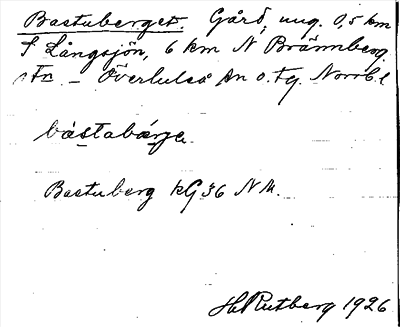 Bastuberget. Gård, ung. 0,5 km
S Långsjön, 6 km N Brännberg
stn. – Överluleå sn o. tg. Norrb. l
bástabárje.
Bastuberg kG36 NM.
H. Rutberg 1926.